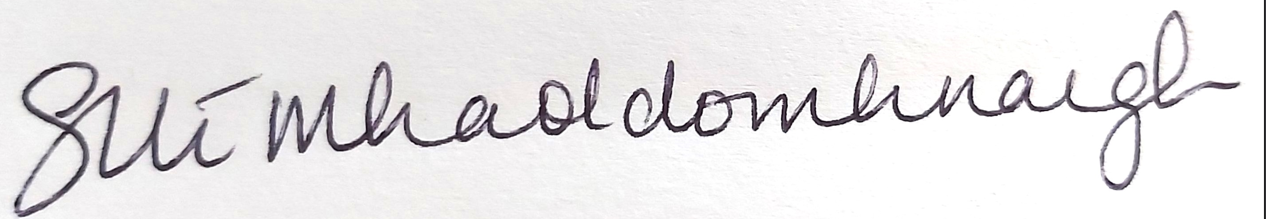 Suí Mhaoldomhnaigh